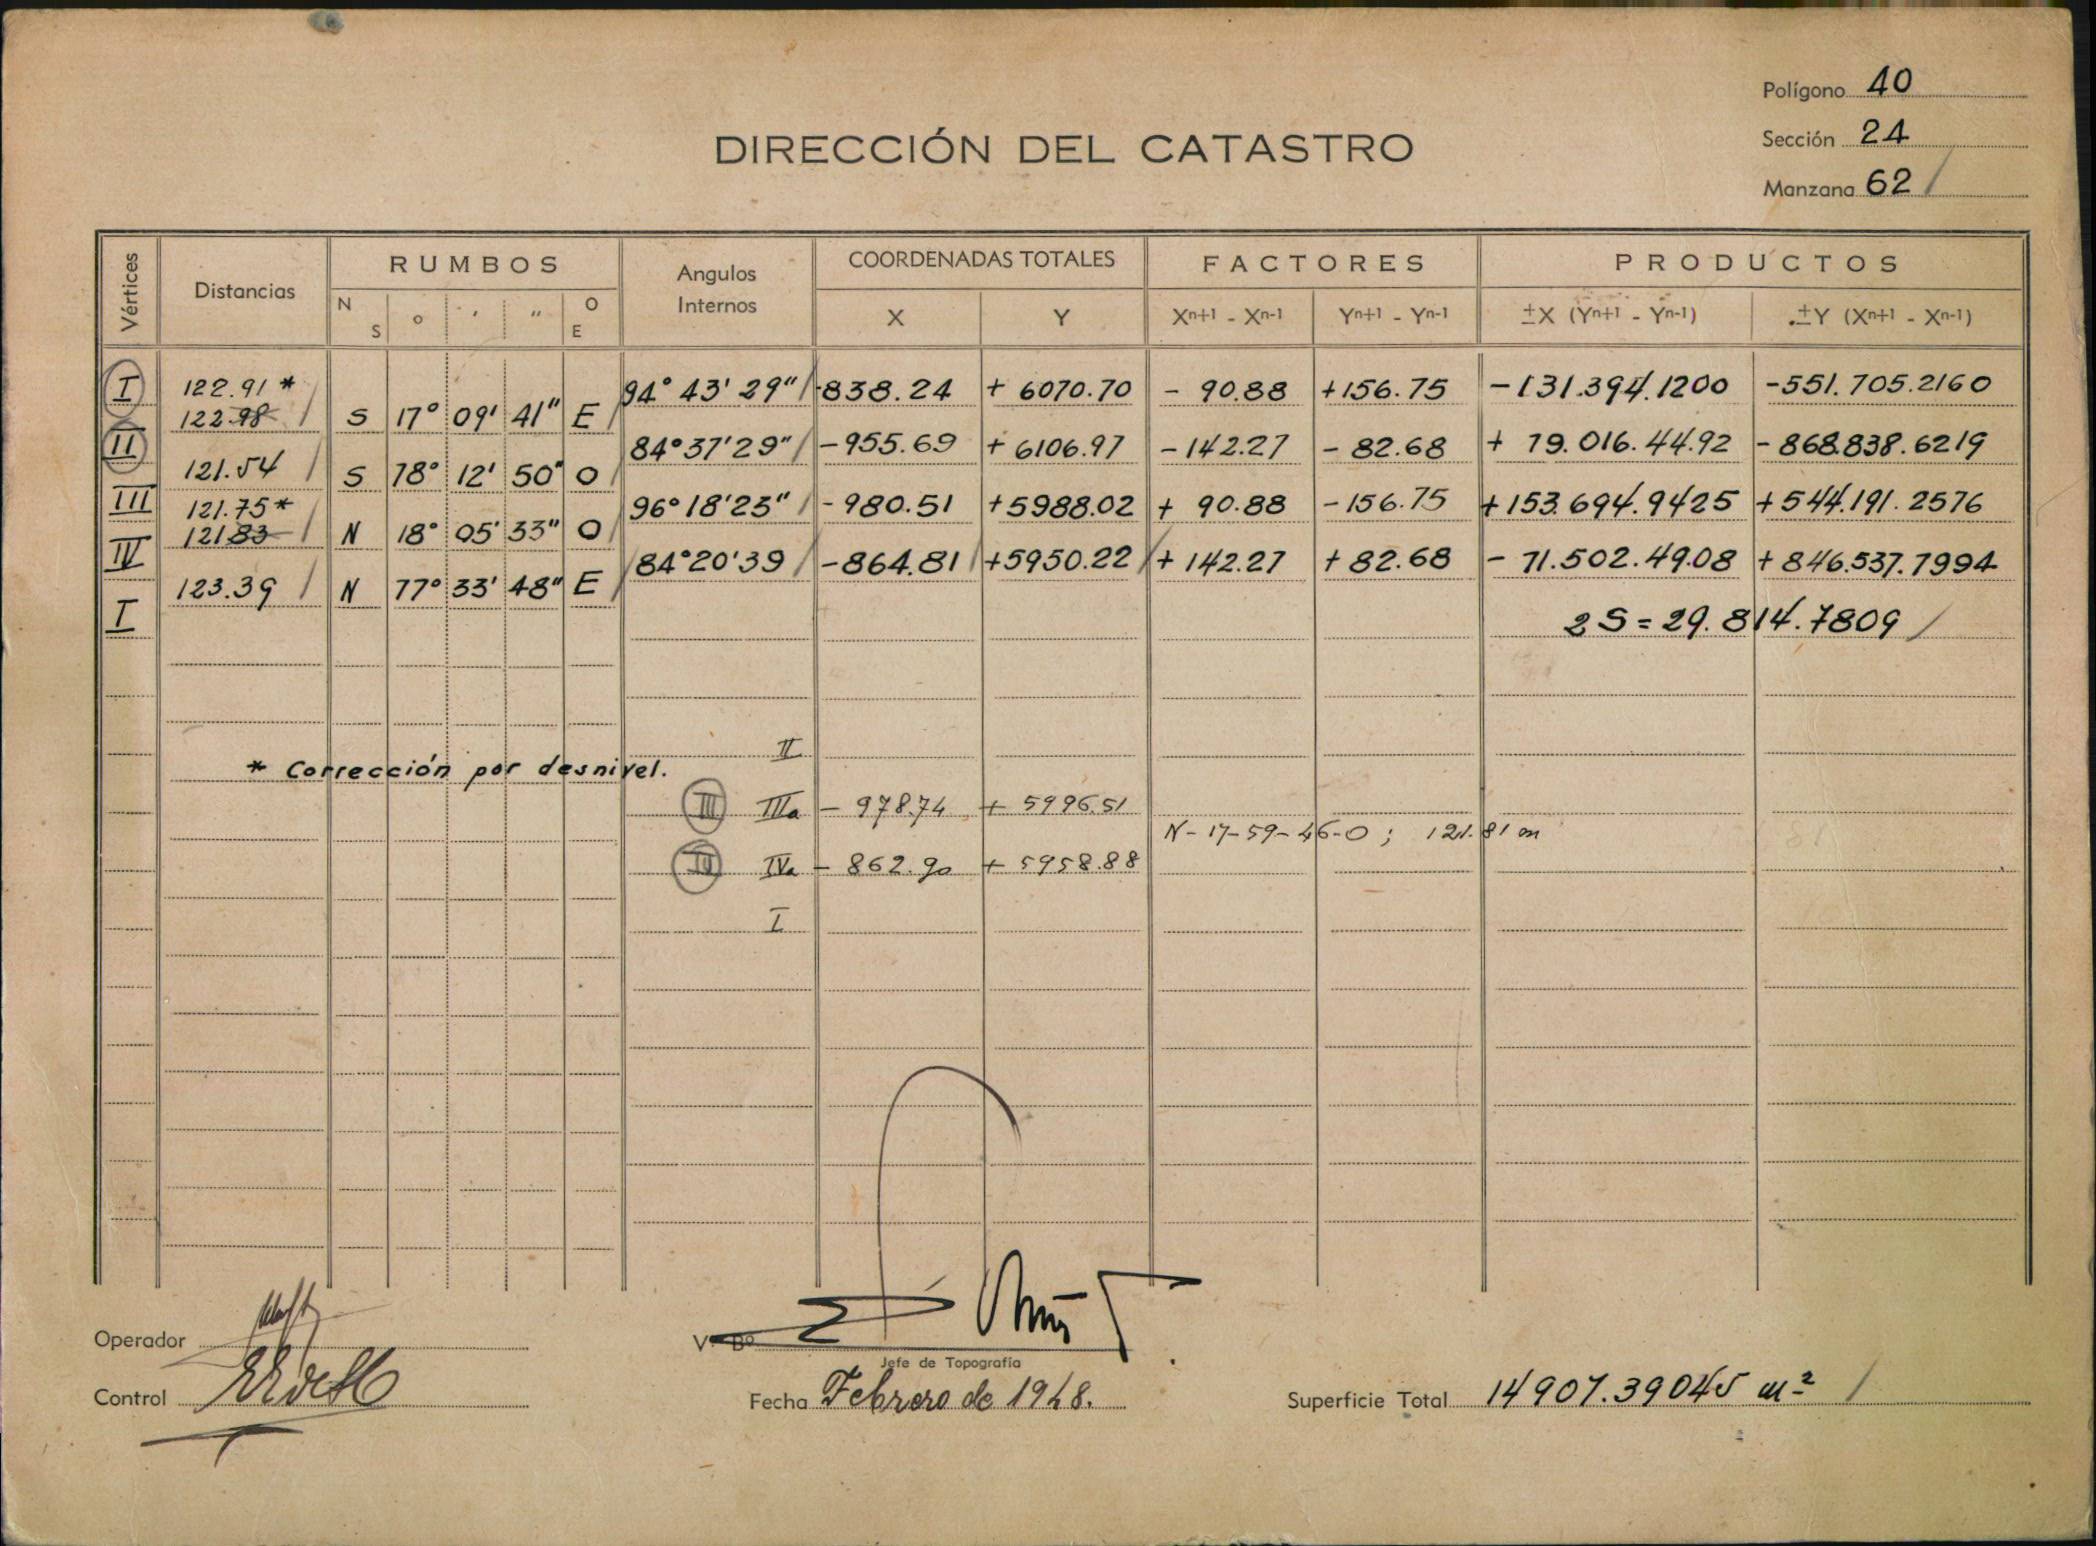 Polígono 40
DIRECCIÓN DEL CATASTRO
Sección 24
Manzana 62 /
Vértices
Distancias
RUMBOS
N S ° ' " O E
Angulos Internos
COORDENADAS TOTALES
X Y
FACTORES
Xn+1 - Xn-1 Yn+1 - Yn-1
PRODUCTOS
±X (Yn+1 - Yn-1) ±Y (Xn+1 - Xn-1)
I 94° 43' 29" / -838.24 + 6070.70 - 90.88 +156.75 -131.394.1200 -551.705.2160
122.91 *
122.98 / S 17° 09' 41" E /
II 84°37'29" / -955.69 + 6106.97 -142.27 - 82.68 + 79.016.4492 -868.838.6219
121.54 / S 78° 12' 50" O /
III 96°18'23" / -980.51 +5988.02 + 90.88 -156.75 +153.694.9425 +544.191.2576
121.75*
121.83 / N 18° 05' 33" O /
IV 84°20'39 / -864.81 / +5950.22 / + 142.27 + 82.68 - 71.502.4908 + 846.537.7994
123.39 / N 77° 33' 48" E /
I 2S = 29.814.7809 /
II
* Corrección por desnivel.
III IIIa - 978.74 + 5996.51
N-17-59-46-O ; 121.81 m
IV IVa - 862.90 + 5958.88
I
Operador
V° B°
Jefe de Topografía
Control
Fecha Febrero de 1948.
Superficie Total 14907.39045 m² /